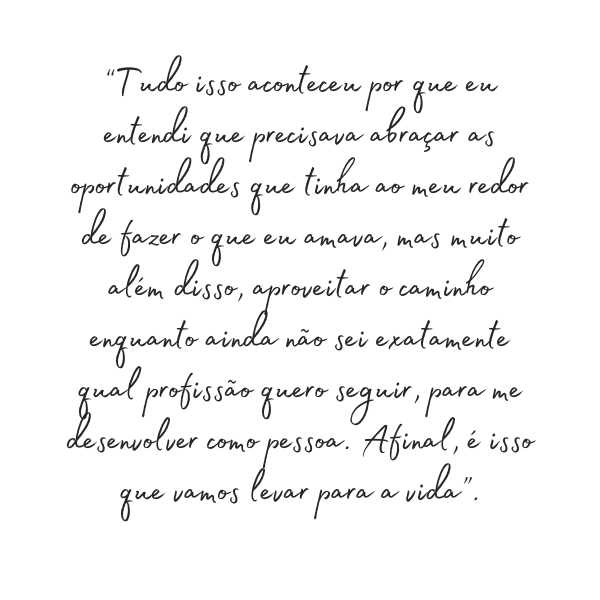 “Tudo isso aconteceu por que eu
entendi que precisava abraçar as
oportunidades que tinha ao meu redor
de fazer o que eu amava, mas muito
além disso, aproveitar o caminho
enquanto ainda não sei exatamente
qual profissão quero seguir, para me
desenvolver como pessoa. Afinal, é isso
que vamos levar para a vida”.